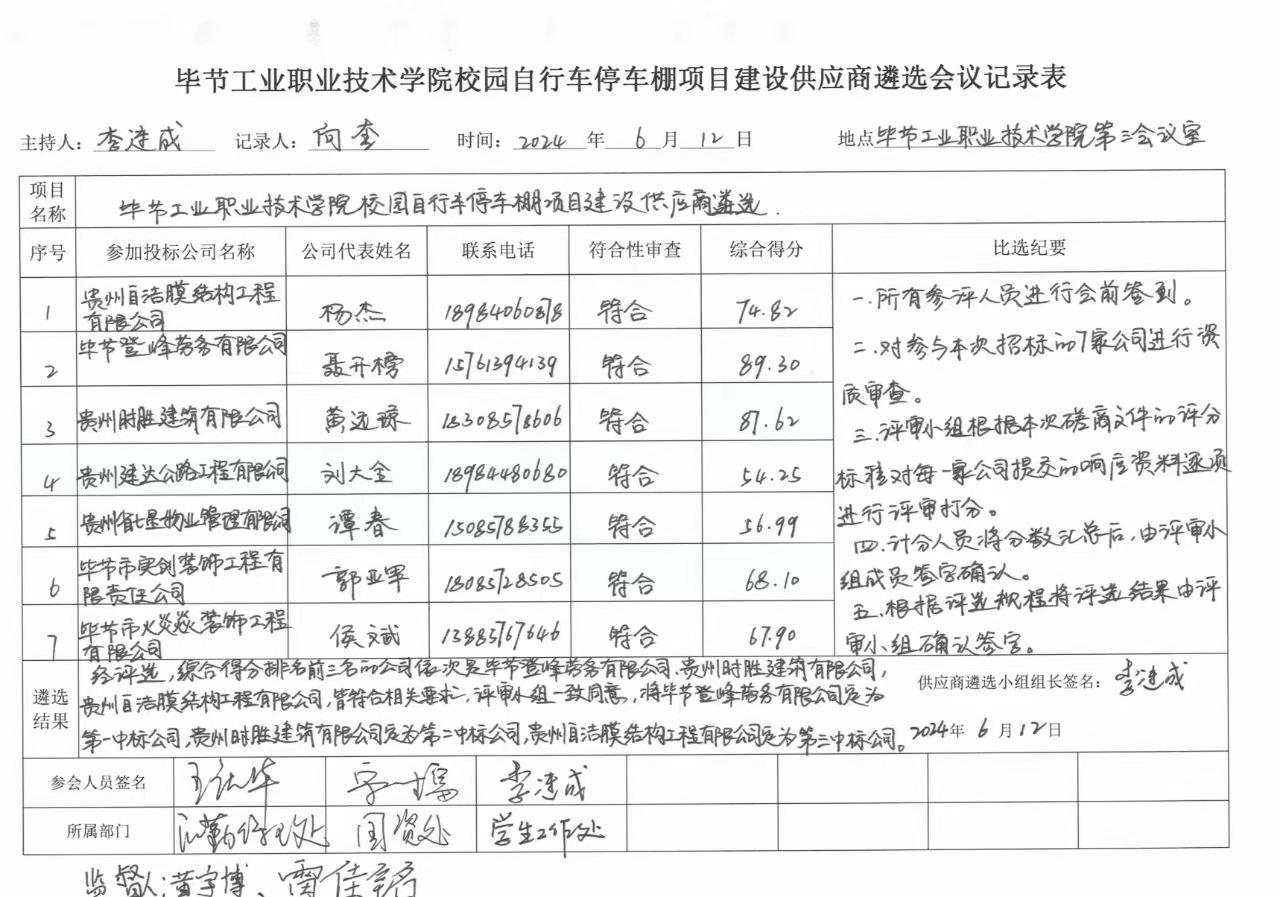 毕节工业职业技术学院校园自行车停车棚项目建设供应商遴选会议记录表
主持人：李连成 记录人：向奎 时间：2024 年 6 月 12 日 地点 毕节工业职业技术学院第三会议室
项目名称 毕节工业职业技术学院校园自行车停车棚项目建设供应商遴选.
序号 参加投标公司名称 公司代表姓名 联系电话 符合性审查 综合得分 比选纪要
1 贵州自洁膜结构工程有限公司 杨杰 18984060878 符合 74.82
2 毕节登峰劳务有限公司 聂开榜 15761394139 符合 89.30
3 贵州时胜建筑有限公司 黄远琼 18308578606 符合 87.62
4 贵州建达公路工程有限公司 刘大金 18984480680 符合 54.25
5 贵州省七星物业管理有限公司 谭春 15085788355 符合 56.99
6 毕节市实创装饰工程有限责任公司 郭亚军 18085728505 符合 68.10
7 毕节市火焱焱装饰工程有限公司 侯斌 13885767646 符合 67.90
一.所有参评人员进行会前签到。
二.对参与本次招标的7家公司进行资
质审查。
三.评审小组根据本次磋商文件的评分
标准对每一家公司提交的响应资料逐项
进行评审打分。
四.计分人员将分数汇总后,由评审小
组成员签字确认。
五.根据评选规程将评选结果由评
审小组确认签字。
遴选结果
经评选,综合得分排名前三名的公司依次是毕节登峰劳务有限公司.贵州时胜建筑有限公司,
贵州自洁膜结构工程有限公司,皆符合相关要求,评审小组一致同意,将毕节登峰劳务有限公司定为
第一中标公司,贵州时胜建筑有限公司定为第二中标公司,贵州自洁膜结构工程有限公司定为第三中标公司。
供应商遴选小组组长签名：李连成
2024年 6 月 12 日
参会人员签名 李连成
所属部门 国资处 学生工作处
监督人:黄宇博、雷佳